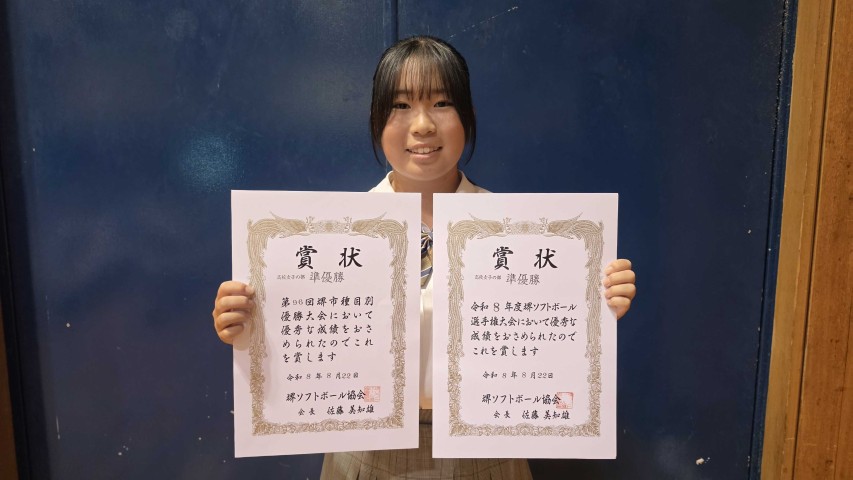 賞状
高校女子の部 準優勝
第96回堺市種目別
優勝大会において
優秀な成績をおさ
められたのでこれ
を賞します
令和8年8月22日
堺ソフトボール協会
会長 佐藤美知雄
賞状
高校女子の部 準優勝
令和8年度堺ソフトボール
選手権大会において優秀な
成績をおさめられたので
これを賞します
令和8年8月22日
堺ソフトボール協会
会長 佐藤美知雄